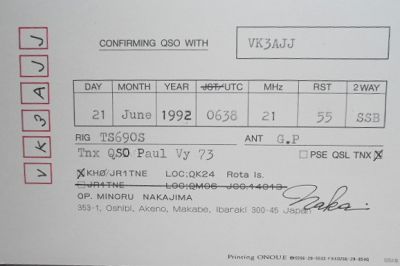 CONFIRMING QSO WITH VK3AJJ
VK3AJJ
DAY MONTH YEAR JST/UTC MHz RST 2WAY
21 June 1992 0638 21 55 SSB
RIG TS690S ANT G.P
Tnx QSO Paul Vy 73 PSE QSL TNX
KH0/JR1TNE LOC:QK24 Rota Is.
JR1TNE LOC:QM06 JCC.14013
OP. MINORU NAKAJIMA
353-1, Oshibi, Akeno, Makabe, Ibaraki 300-45 Japan
Printing ONOUE